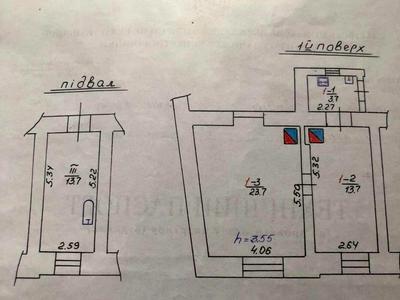 підвал
1й поверх
1-1
3.7
2.27
III
13.7
5.34
5.22
2.59
1-3
23.7
5.50
5.32
1-2
13.7
h = 3.55
4.06
2.64